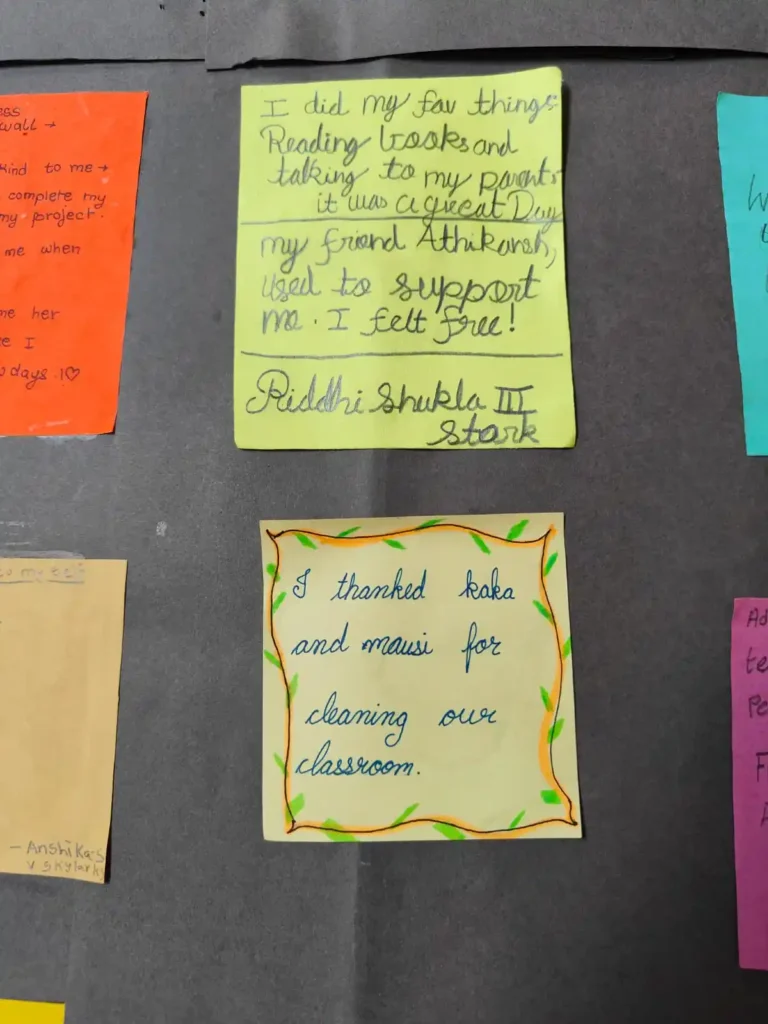 ess
wall →
kind to me →
complete my
my project.
me when
me her
e I
days !♡
I did my fav things
Reading books and
talking to my parents
it was a great Day
my friend Athikarsh,
used to support
me. I felt free!
Riddhi Shukla III
Stork
to my self
- Anshika S
V Skylark
I thanked kaka
and mausi for
cleaning our
classroom.
W
t
Ad
te
Pe
F
A